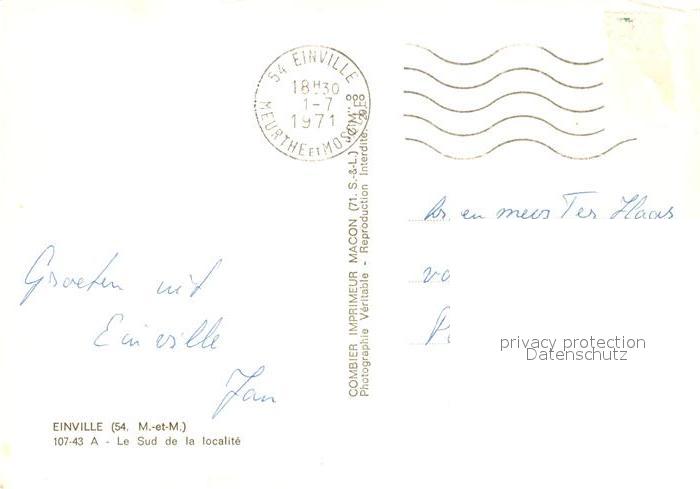 54 EINVILLE
18H30
1-7
1971
MEURTHE ET MOSELLE
COMBIER IMPRIMEUR MACON (71. S.-&-L.) "CIM"
Photographie Véritable - Reproduction Interdite.
en mevr Ter Haar
Groeten uit
Einville
Jan
privacy protection
Datenschutz
EINVILLE (54. M.-et-M.)
107-43 A - Le Sud de la localité